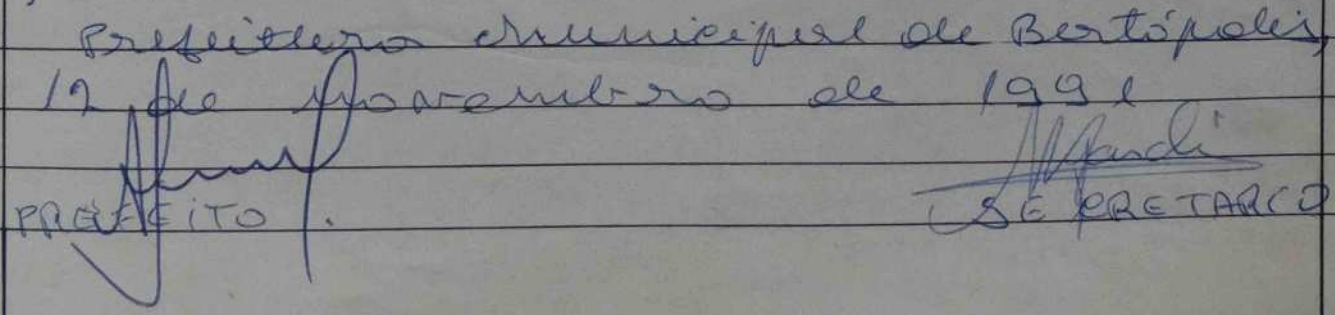 Prefeitura Municipal de Bertópolis,
12 de Novembro de 1991
PREFEITO. SECRETARIO